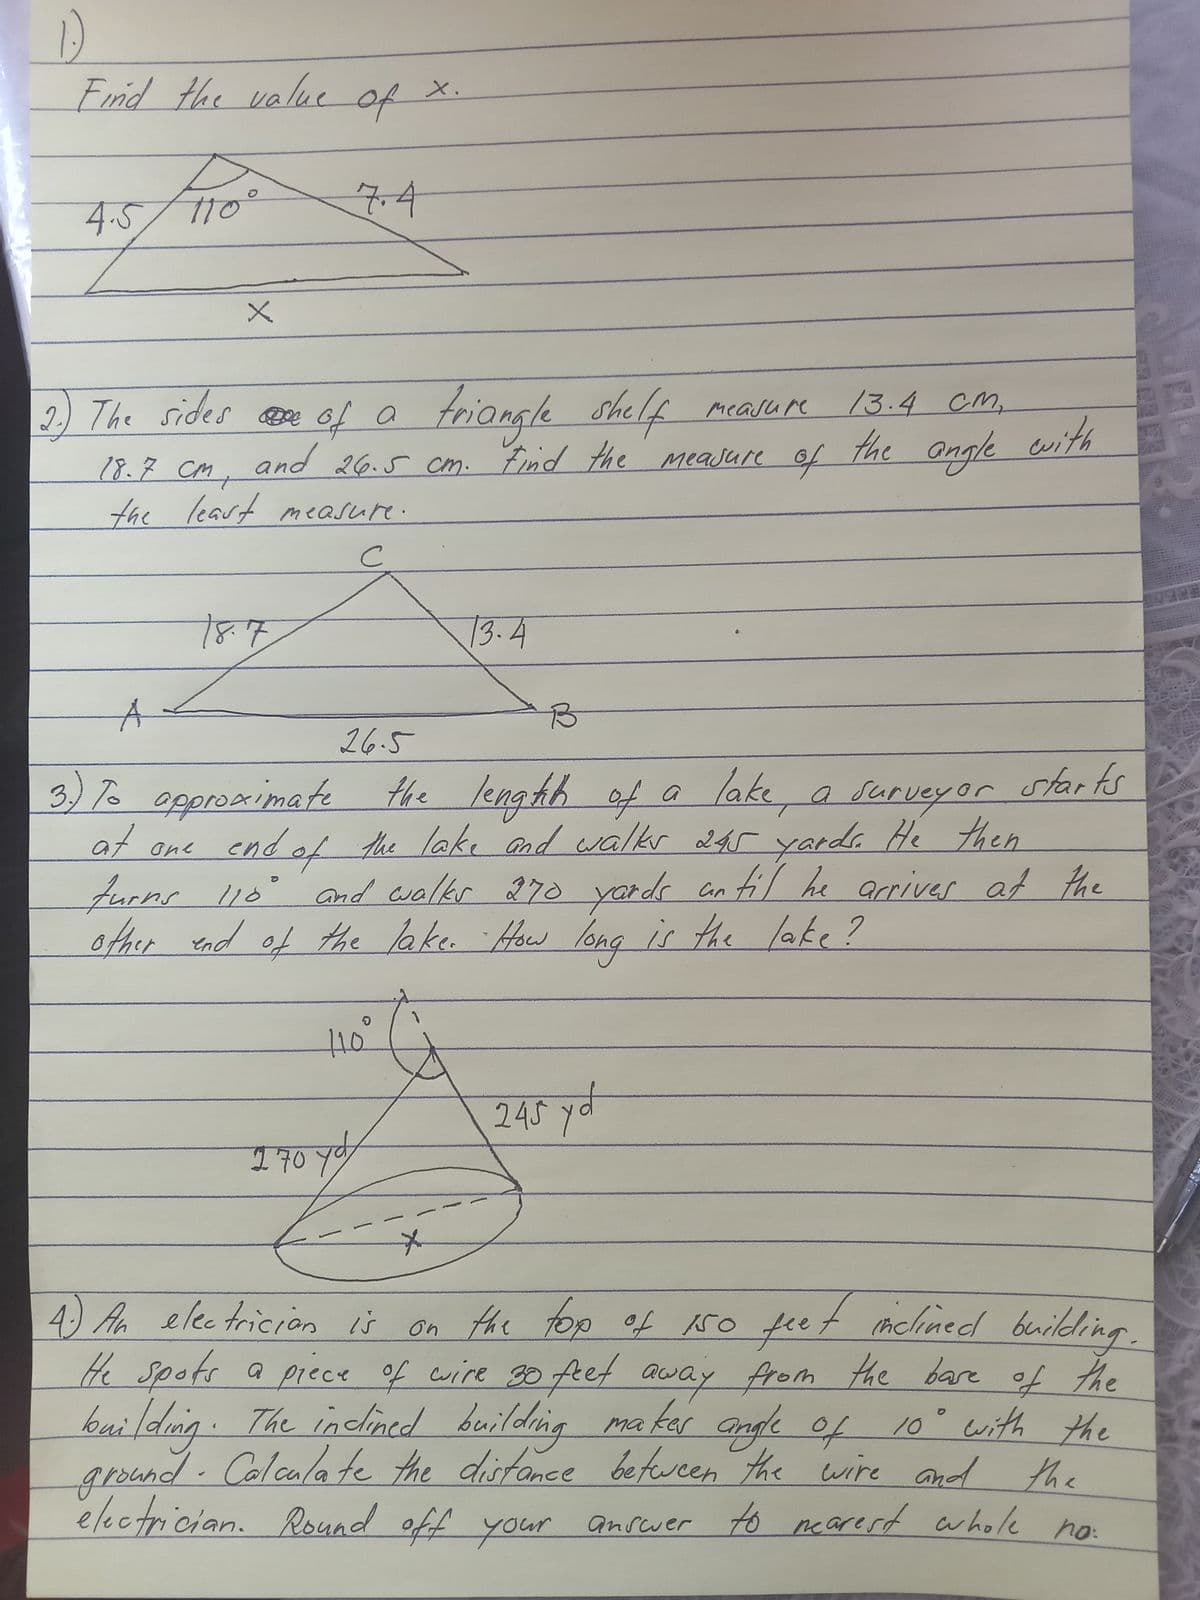 1.)
Find the value of x.
4.5
110°
7.4
x
2.) The sides of a triangle shelf measure 13.4 cm,
18.7 cm, and 26.5 cm. Find the measure of the angle with
the least measure.
C
18.7
13.4
A
B
26.5
3.) To approximate the length of a lake, a surveyor starts
at one end of the lake and walks 245 yards. He then
turns 110° and walks 270 yards until he arrives at the
other end of the lake. How long is the lake?
110°
245 yd
270 yd
x
4.) An electrician is on the top of 150 feet inclined building.
He spots a piece of wire 30 feet away from the base of the
building. The inclined building makes angle of 10° with the
ground. Calculate the distance between the wire and the
electrician. Round off your answer to nearest whole no.